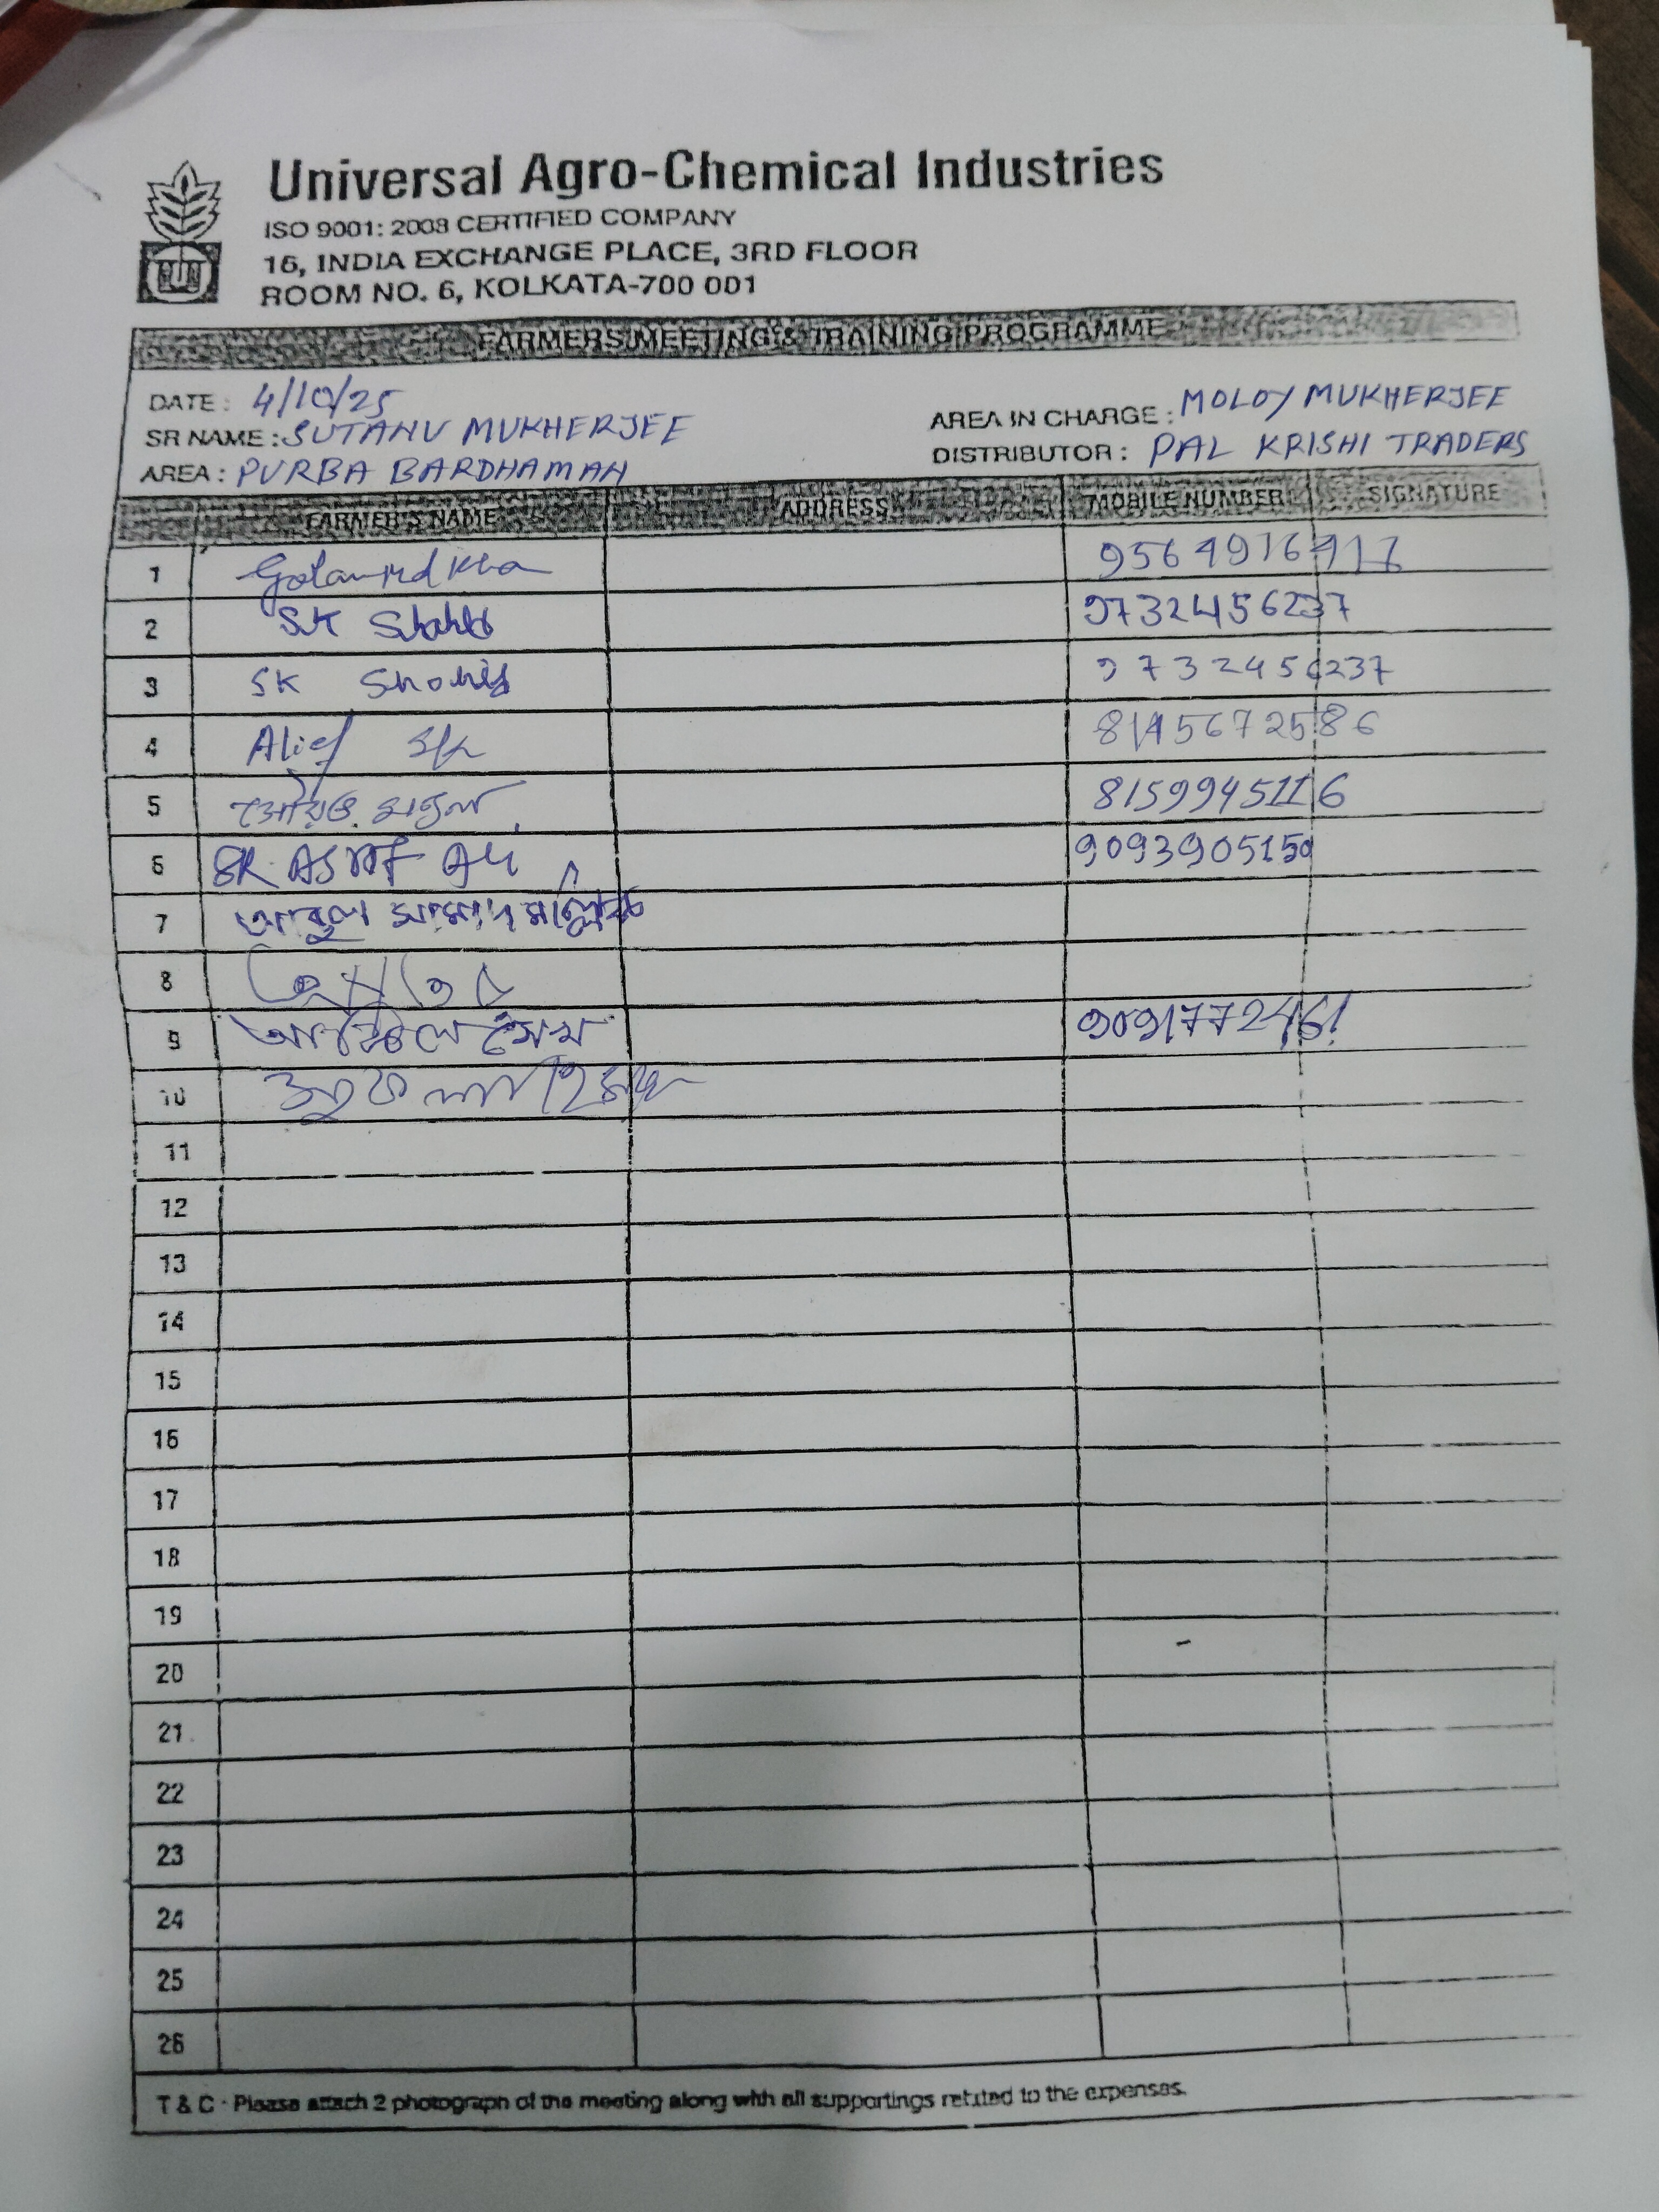 Universal Agro-Chemical Industries
ISO 9001: 2008 CERTIFIED COMPANY
16, INDIA EXCHANGE PLACE, 3RD FLOOR
ROOM NO. 6, KOLKATA-700 001
FARMERS MEETING & TRAINING PROGRAMME
DATE : 4/10/25
AREA IN CHARGE : MOLOY MUKHERJEE
SR NAME : SUTANU MUKHERJEE
DISTRIBUTOR : PAL KRISHI TRADERS
AREA : PURBA BARDHAMAN
FARMER'S NAME ADDRESS MOBILE NUMBER SIGNATURE
1
2 SK 9732456237
3 SK 9732456237
4 Alief SK 8145672586
5 8159945116
6 SK. 9093905150
7 আবুল সামাদ মল্লিক
8
9 সেখ 9091772461
10
11
12
13
14
15
16
17
18
19
20
21
22
23
24
25
26
T & C : Please attach 2 photograph of the meeting along with all supportings related to the expenses.